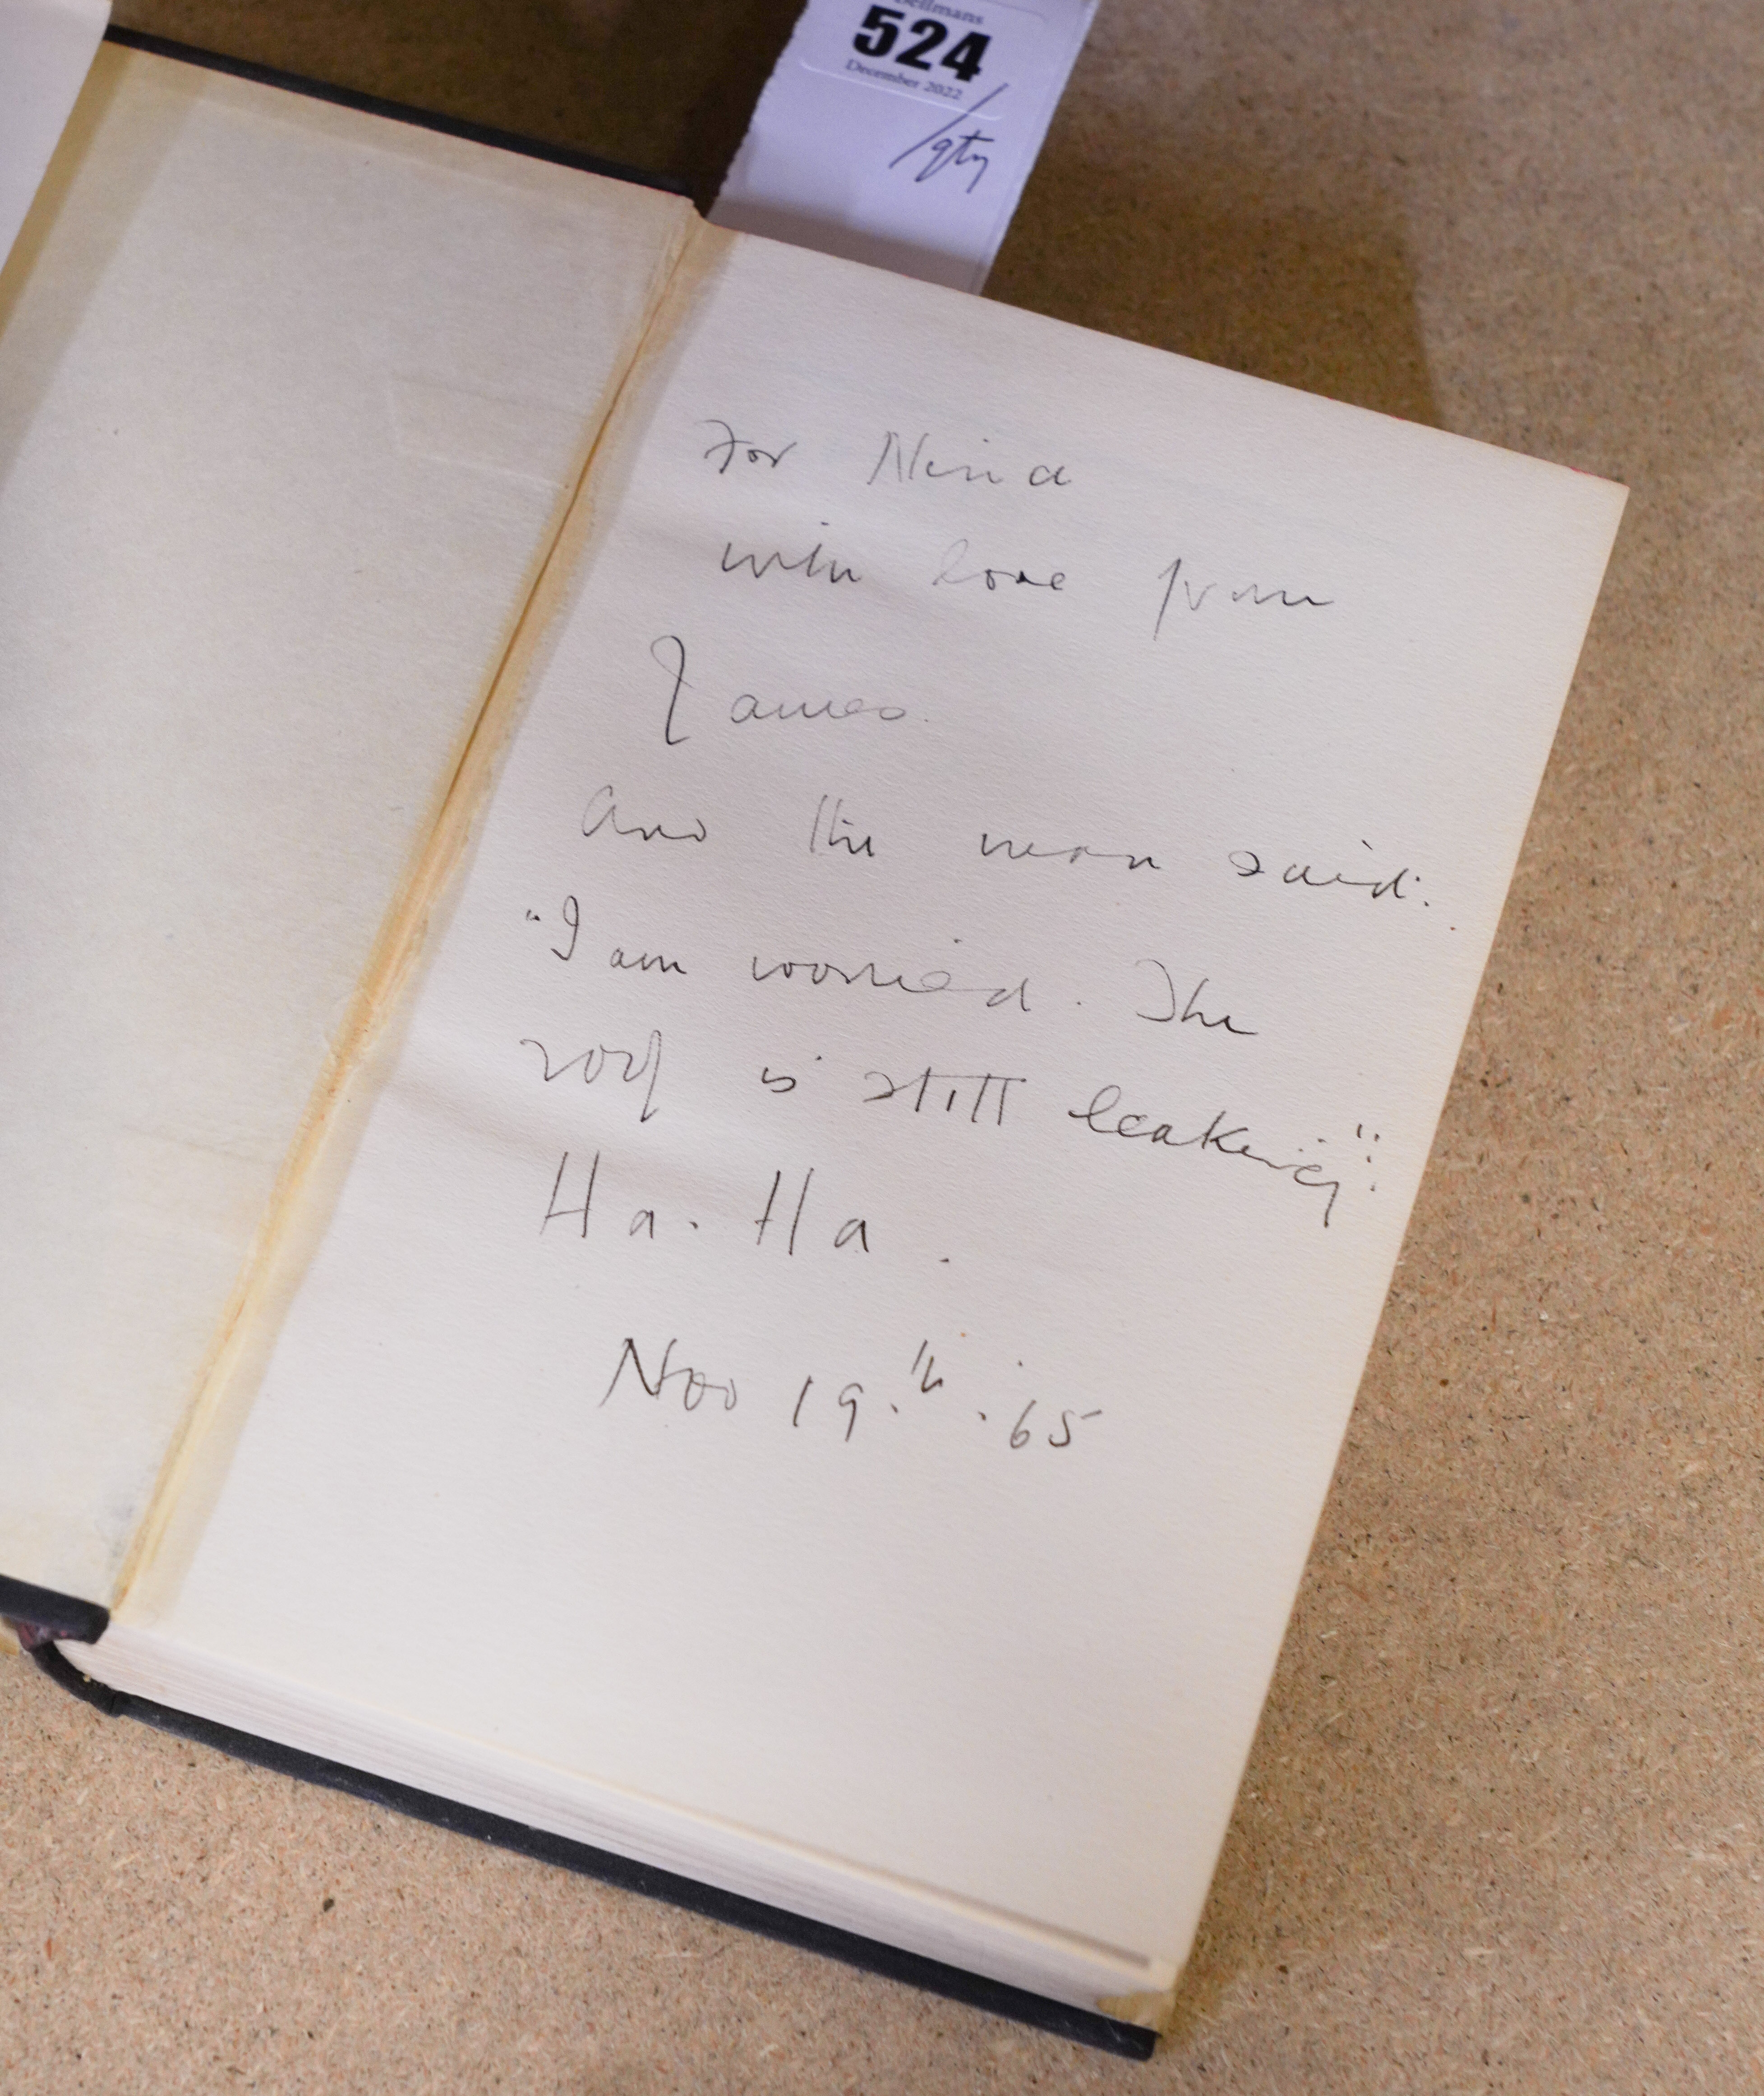 Bellmans
524
December 2022
/qty
For Nina
with love from
James.
And the man said:
"I am worried. The
roof is still leaking":
Ha. Ha.
Nov 19.th.65